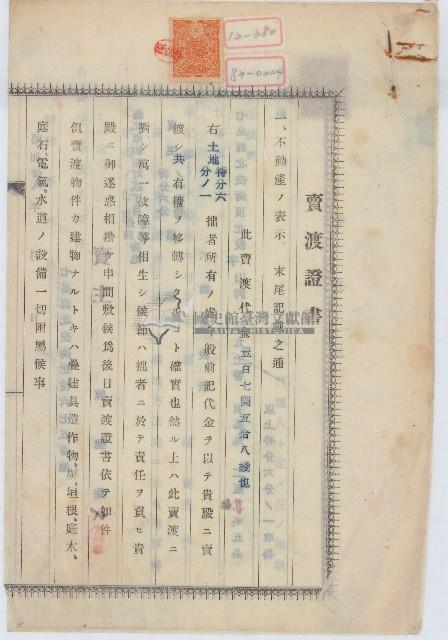 賣渡證書
一、不動產ノ表示 末尾記載之通
此賣渡代金壹百七圓五拾八錢也
右土地持分六分ノ一拙者所有ノ處今般前記代金ヲ以テ貴殿ニ賣
渡シ共有權ヲ移轉シタルコト確實也然ル上ハ此賣渡ニ
對シ萬一故障等相生シ候節ハ拙者ニ於テ責任ヲ負ヒ貴
殿ニ御迷惑相掛ケ申間敷候爲後日賣渡證書依テ如件
但賣渡物件カ建物ナルトキハ疊建具造作物、塀、垣根、庭木、
庭石、電氣、水道ノ設備一切附屬候事
國史館臺灣文獻館
TAIWAN HISTORICA